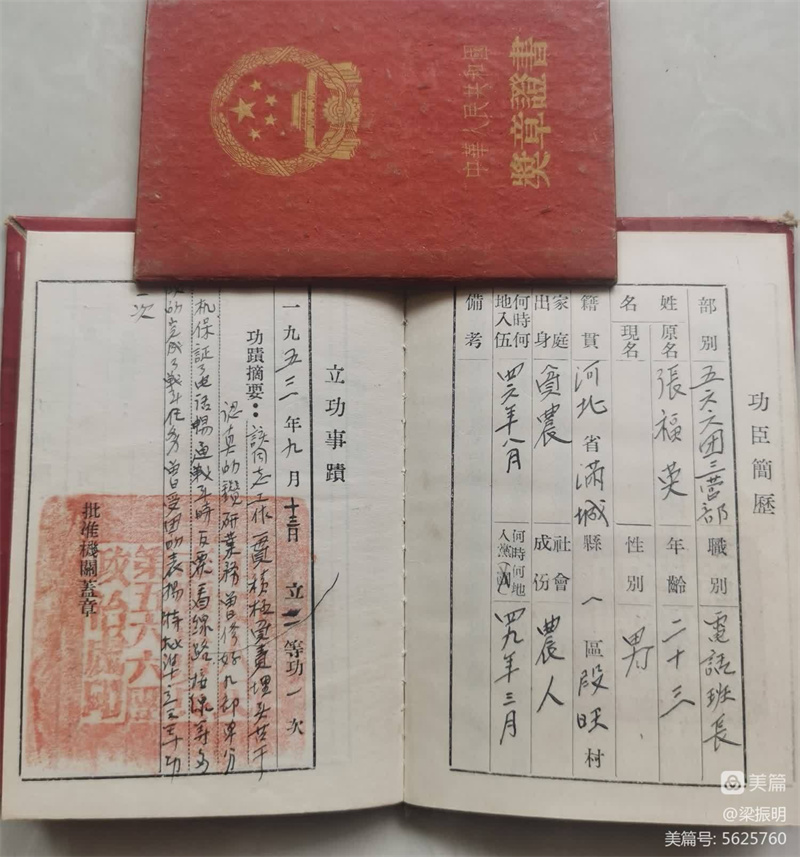 中華人民共和國
獎章證書
功臣簡歷
部別 五六六团三营部 職別 電話班長
姓名 原名 張福英 年齡 二十三
現名 性別 男
籍貫 河北省滿城縣八區段旺村
家庭出身 貧農 社會成份 農人
何時何地入伍 四六年八月 何時何地入黨(团) 四九年三月
備考
立功事蹟
一九五三年九月十三日立三等功一次
功蹟摘要：該同志工作一貫積極負責埋头苦干
認真的鑽研業務曾修好九部单
机保証了电话暢通战斗時反覆看線路接線
的完成了戰斗任务曾受团的表揚特批准立三等功
一次
批准機關蓋章
第五六六團
政治處印
美篇
@梁振明
美篇号: 5625760